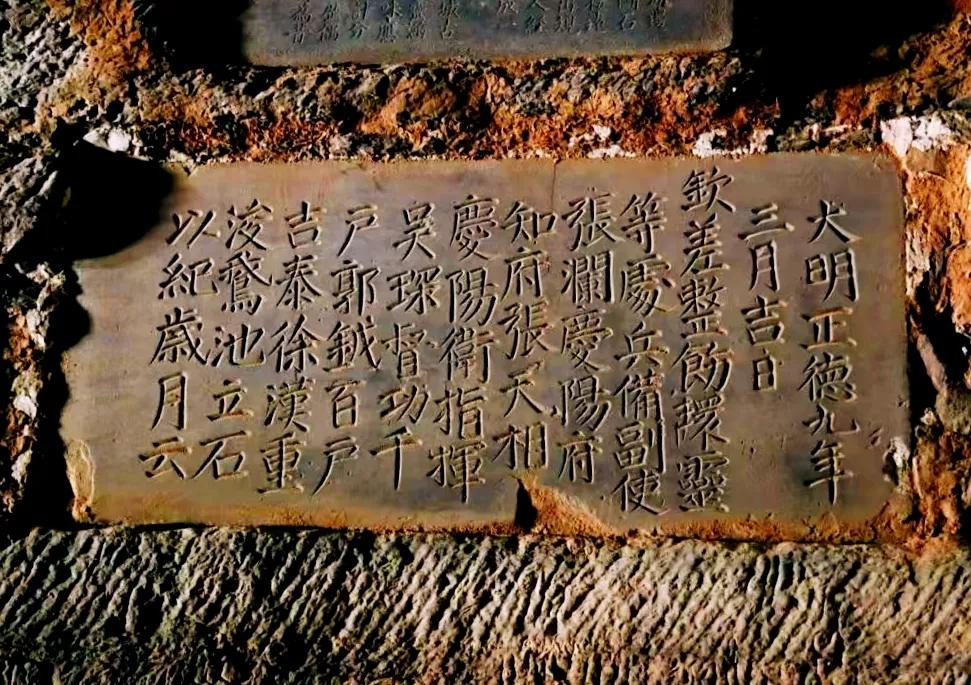 大明正德九年
三月吉日
欽差整飭環靈
等處兵備副使
張瀾慶陽府
知府張天相
慶陽衛指揮
吳琛督功千
戶郭鉞百戶
吉泰徐漢重
浚鵞池立石
以紀歲月云